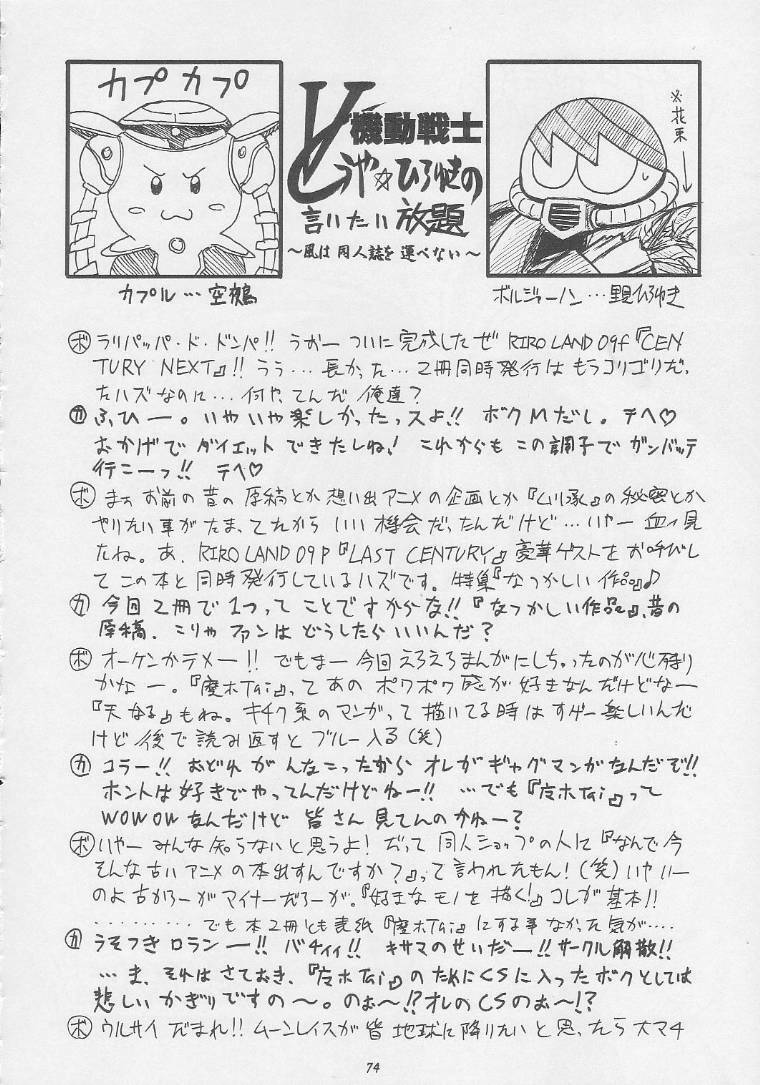 カプカプ
機動戦士
とうや☆ひろゆきの
言いたい放題
～風は同人誌を運べない～
※花束
カプル…空鶴
ボルジャーノン…野ひろゆき
ボ ラリパッパ・ド・ドンパ!! うおーついに完成したぜ RIROLAND09f『CEN
TURY NEXT』!! うう…長かった…2冊同時発行はもうコリゴリだ、
たハズなのに…何やってんだ俺達?
カ ふひー。いやいや楽しかったっスよ!! ボクMだし。テヘ♡
おかげでダイエットできたしね! これからもこの調子でガンバッテ
行こーっ!! テヘ♡
ボ まぁお前の昔の原稿とか想い出アニメの企画とか『 』の秘密とか
やりたい事がたまってたからいい機会だったんだけど…いやー血ィ見
たね。あ、RIROLAND09P『LAST CENTURY』豪華ゲストをお呼びし
てこの本と同時発行しているハズです。特集『なつかしい作品』♪
カ 今回2冊で1つってことですからな!!『なつかしい作品』、昔の
原稿、こりゃファンはどうしたらいいんだ?
ボ オーケンかテメー!! でもまー今回えろえろまんがにしちゃったのが心残り
かなー。『魔ホTai』ってあのポワポワ感が好きなんだけどなー
『天なる』もね。キチク系のマンガって描いてる時はすげー楽しいんだ
けど後で読み返すとブルー入る(笑)
カ コラー!! おどれがんなこったからオレがギャグマンガなんだぞ!!
ホントは好きでやってんだけどねー!! …でも『魔ホTai』って
WOWOWなんだけど皆さん見てんのかねー?
ボ いやーみんな知らないと思うよ! だって同人ショップの人に『なんで今
そんな古いアニメの本出すんですか?』って言われたもん!(笑)いやいー
のよ古かろーがマイナーだろーが。『好きなモノを描く!』コレが基本!!
………でも本2冊とも表紙『魔ホTai』にする事なかった気が….
カ うそつきロランー!! バチィィ!! キサマのせいだー!! サークル解散!!
…ま、それはさておき、『魔ホTai』のためにCSに入ったボクとしては
悲しいかぎりですの～。のぉ～!? オレのCSのぉ～!?
ボ ウルサイだまれ!! ムーンレイスが皆地球に降りたいと思ったら大マチ
74